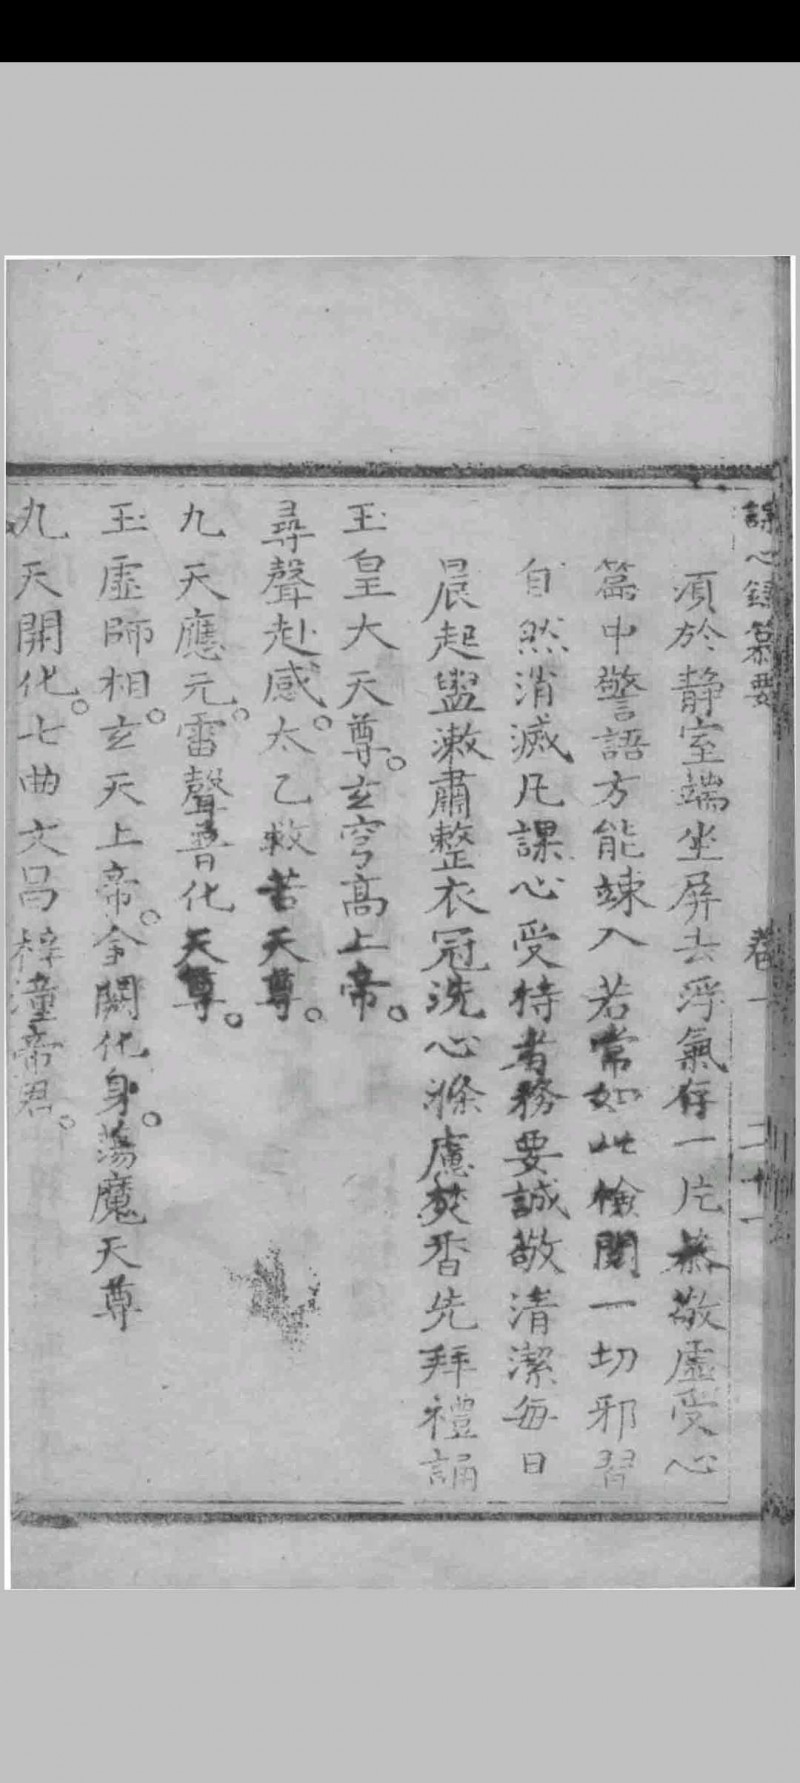 課心錄纂要 卷一 二十一
須於靜室端坐屏去浮氣存一片恭敬虛受心
篇中警語方能竦入若常如此檢閱一切邪習
自然消滅凡課心受持者務要誠敬清潔每日
晨起盥漱肅整衣冠洗心滌慮焚香先拜禮誦
玉皇大天尊。玄穹高上帝。
尋聲赴感。太乙救苦天尊。
九天應元。雷聲普化天尊。
玉虛師相。玄天上帝。金闕化身。蕩魔天尊
九天開化。七曲文昌梓潼帝君。